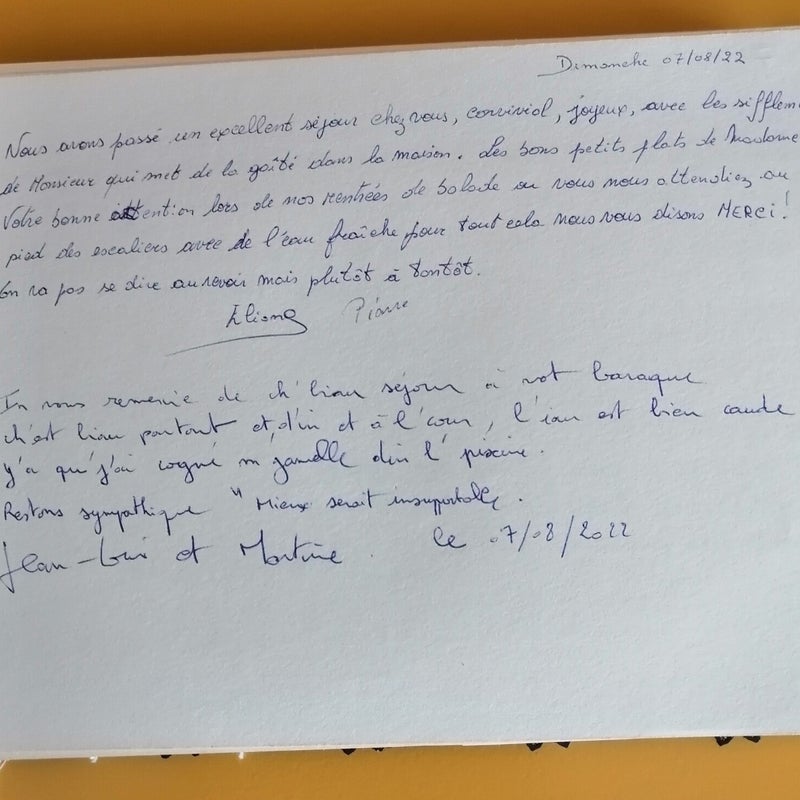 Dimanche 07/08/22
Nous avons passé un excellent séjour chez vous, convivial, joyeux, avec les siffleme
de Monsieur qui met de la gaîté dans la maison. Les bons petits plats de Madame
Votre bonne attention lors de nos rentrées de balade ou vous nous attendiez au
pied des escaliers avec de l'eau fraîche pour tout cela nous vous disons MERCI!
On va pas se dire au revoir mais plutôt à tantôt.
Eliane Pierre
In vous remercie de ch'biau séjour à vot baraque
ch'est biau partout et d'in et à l'cour, l'iau est bien caude
y'a qu'j'ai cogné m'gamelle din l'piscine.
Restons sympathique "Mieux serait insuportable.
Jean-Luis et Martine. le 07/08/2022